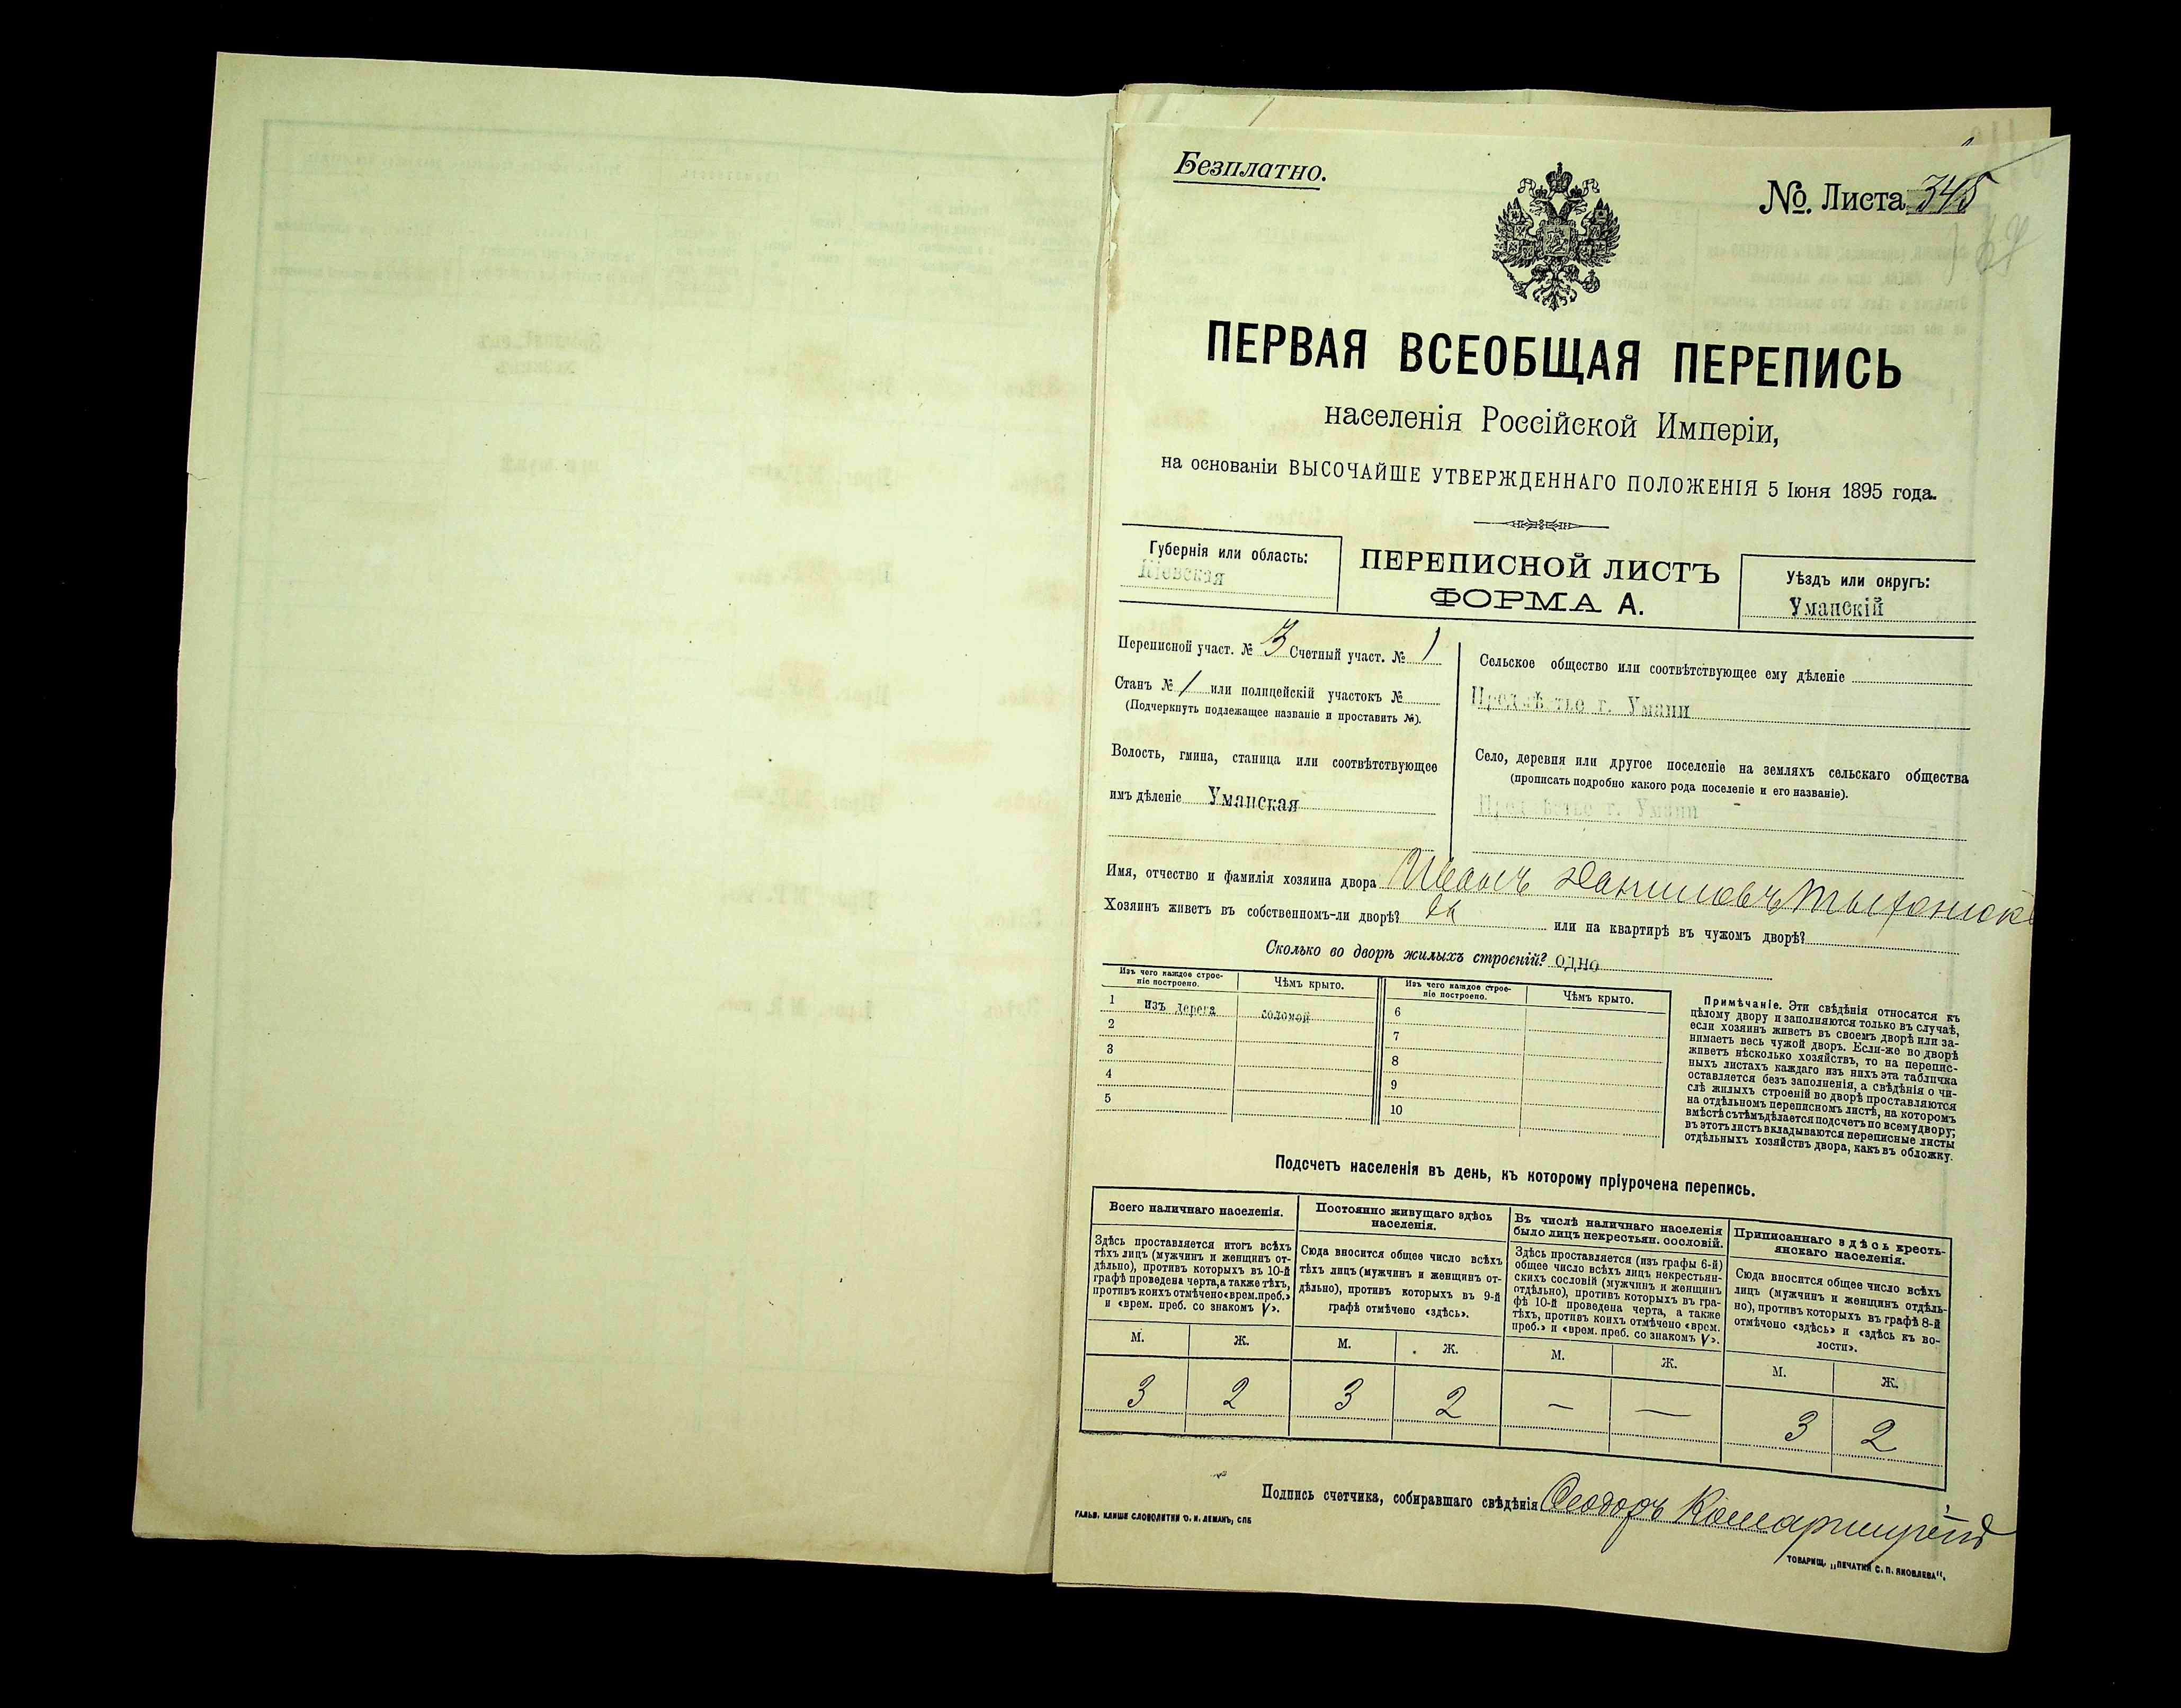 Безплатно.
№ Листа 345
ПЕРВАЯ ВСЕОБЩАЯ ПЕРЕПИСЬ
населенія Россійской Имперіи,
на основаніи ВЫСОЧАЙШЕ УТВЕРЖДЕННАГО ПОЛОЖЕНІЯ 5 Іюня 1895 года.
Губернія или область:
Кіевская
ПЕРЕПИСНОЙ ЛИСТЪ
ФОРМА А.
Уѣздъ или округъ:
Уманскій
Переписной участ. № 3 Счетный участ. № 1
Станъ № 1 или полицейскій участокъ №
(Подчеркнуть подлежащее названіе и проставить №).
Волость, гмина, станица или соотвѣтствующее
имъ дѣленіе Уманская
Сельское общество или соотвѣтствующее ему дѣленіе
Предмѣстье г. Умани
Село, деревня или другое поселеніе на земляхъ сельскаго общества
(прописать подробно какого рода поселеніе и его названіе).
Предмѣстье г. Умани
Имя, отчество и фамилія хозяина двора Иванъ Даниловъ
Хозяинъ живетъ въ собственномъ-ли дворѣ? или на квартирѣ въ чужомъ дворѣ?
Сколько во дворѣ жилыхъ строеній? одно
Изъ чего каждое строе-
ніе построено.
Чѣмъ крыто.
Изъ чего каждое строе-
ніе построено.
Чѣмъ крыто.
1 Изъ дерева соломой 6
2 7
3 8
4 9
5 10
Примѣчаніе. Эти свѣдѣнія относятся къ
цѣлому двору и заполняются только въ случаѣ,
если хозяинъ живетъ въ своемъ дворѣ или за-
нимаетъ весь чужой дворъ. Если-же во дворѣ
живетъ нѣсколько хозяйствъ, то на перепис-
ныхъ листахъ каждаго изъ нихъ эта табличка
оставляется безъ заполненія, а свѣдѣнія о чи-
слѣ жилыхъ строеній во дворѣ проставляются
на отдѣльномъ переписномъ листѣ, на которомъ
вмѣстѣ съ тѣмъ дѣлается подсчетъ по всему двору;
въ этотъ листъ вкладываются переписные листы
отдѣльныхъ хозяйствъ двора, какъ въ обложку.
Подсчетъ населенія въ день, къ которому пріурочена перепись.
Всего наличнаго населенія.
Здѣсь проставляется итогъ всѣхъ
тѣхъ лицъ (мужчинъ и женщинъ от-
дѣльно), противъ которыхъ въ 10-й
графѣ проведена черта, а также тѣхъ,
противъ коихъ отмѣчено «врем. преб.»
и «врем. преб. со знакомъ V».
Постоянно живущаго здѣсь
населенія.
Сюда вносится общее число всѣхъ
тѣхъ лицъ (мужчинъ и женщинъ от-
дѣльно), противъ которыхъ въ 9-й
графѣ отмѣчено «здѣсь».
Въ числѣ наличнаго населенія
было лицъ некрестьян. сословій.
Здѣсь проставляется (изъ графы 6-й)
общее число всѣхъ лицъ некрестьян-
скихъ сословій (мужчинъ и женщинъ
отдѣльно), противъ которыхъ въ гра-
фѣ 10-й проведена черта, а также
тѣхъ, противъ коихъ отмѣчено «врем.
преб.» и «врем. преб. со знакомъ V».
Приписаннаго здѣсь кресть-
янскаго населенія.
Сюда вносится общее число всѣхъ
лицъ (мужчинъ и женщинъ отдѣль-
но), противъ которыхъ въ графѣ 8-й
отмѣчено «здѣсь» и «здѣсь къ во-
лости».
М. Ж. М. Ж. М. Ж. М. Ж.
3 2 3 2 — — 3 2
Подпись счетчика, собиравшаго свѣдѣнія Ѳеодоръ Комарницкій
ГАЛЬВ. КЛИШЕ СЛОВОЛИТНИ О. И. ЛЕМАНЪ, СПБ
ТОВАРИЩ. „ПЕЧАТНЯ С. П. ЯКОВЛЕВА“.